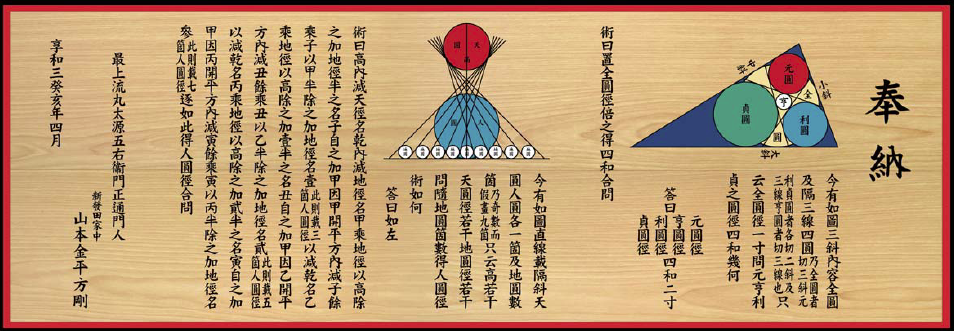 奉納
今有如圖三斜内容全圓
及隔三線四圓乃全圓者切三斜元
利貞圓者各切二斜及三線亨圓者切三線也只
云全圓徑一寸問元亨利
貞之圓徑四和幾何
元圓徑
亨圓徑
答曰
利圓徑
四和二寸
貞圓徑
術曰置全圓徑倍之得四和合問
元圓
貞圓
利圓
亨
全
圓
小斜
中斜
大斜
今有如圖直線載隔斜天
圓人圓各一箇及地圓數
箇乃奇數而假畫九箇只云高若干
天圓徑若干地圓徑若干
問隨地圓箇數得人圓徑
術如何
答曰如左
天
圓
高
人
圓
術曰高内減天徑名乾内減地徑名甲乘地徑以高除
之加地徑半之名子自之加甲因甲開平方内減子餘
乘子以甲半除之加地徑名壹此則載三箇人圓徑以減乾名乙
乘地徑以高除之加壹半之名丑自之加甲因乙開平
方内減丑餘乘丑以乙半除之加地徑名貳此則載五箇人圓徑
以減乾名丙乘地徑以高除之加貳半之名寅自之加
甲因丙開平方内減寅餘乘寅以丙半除之加地徑名
參此則載七箇人圓徑逐如此得人圓徑合問
最上流丸太源五右衛門正通門人
新發田家中
山本金平方剛
享和三癸亥年四月